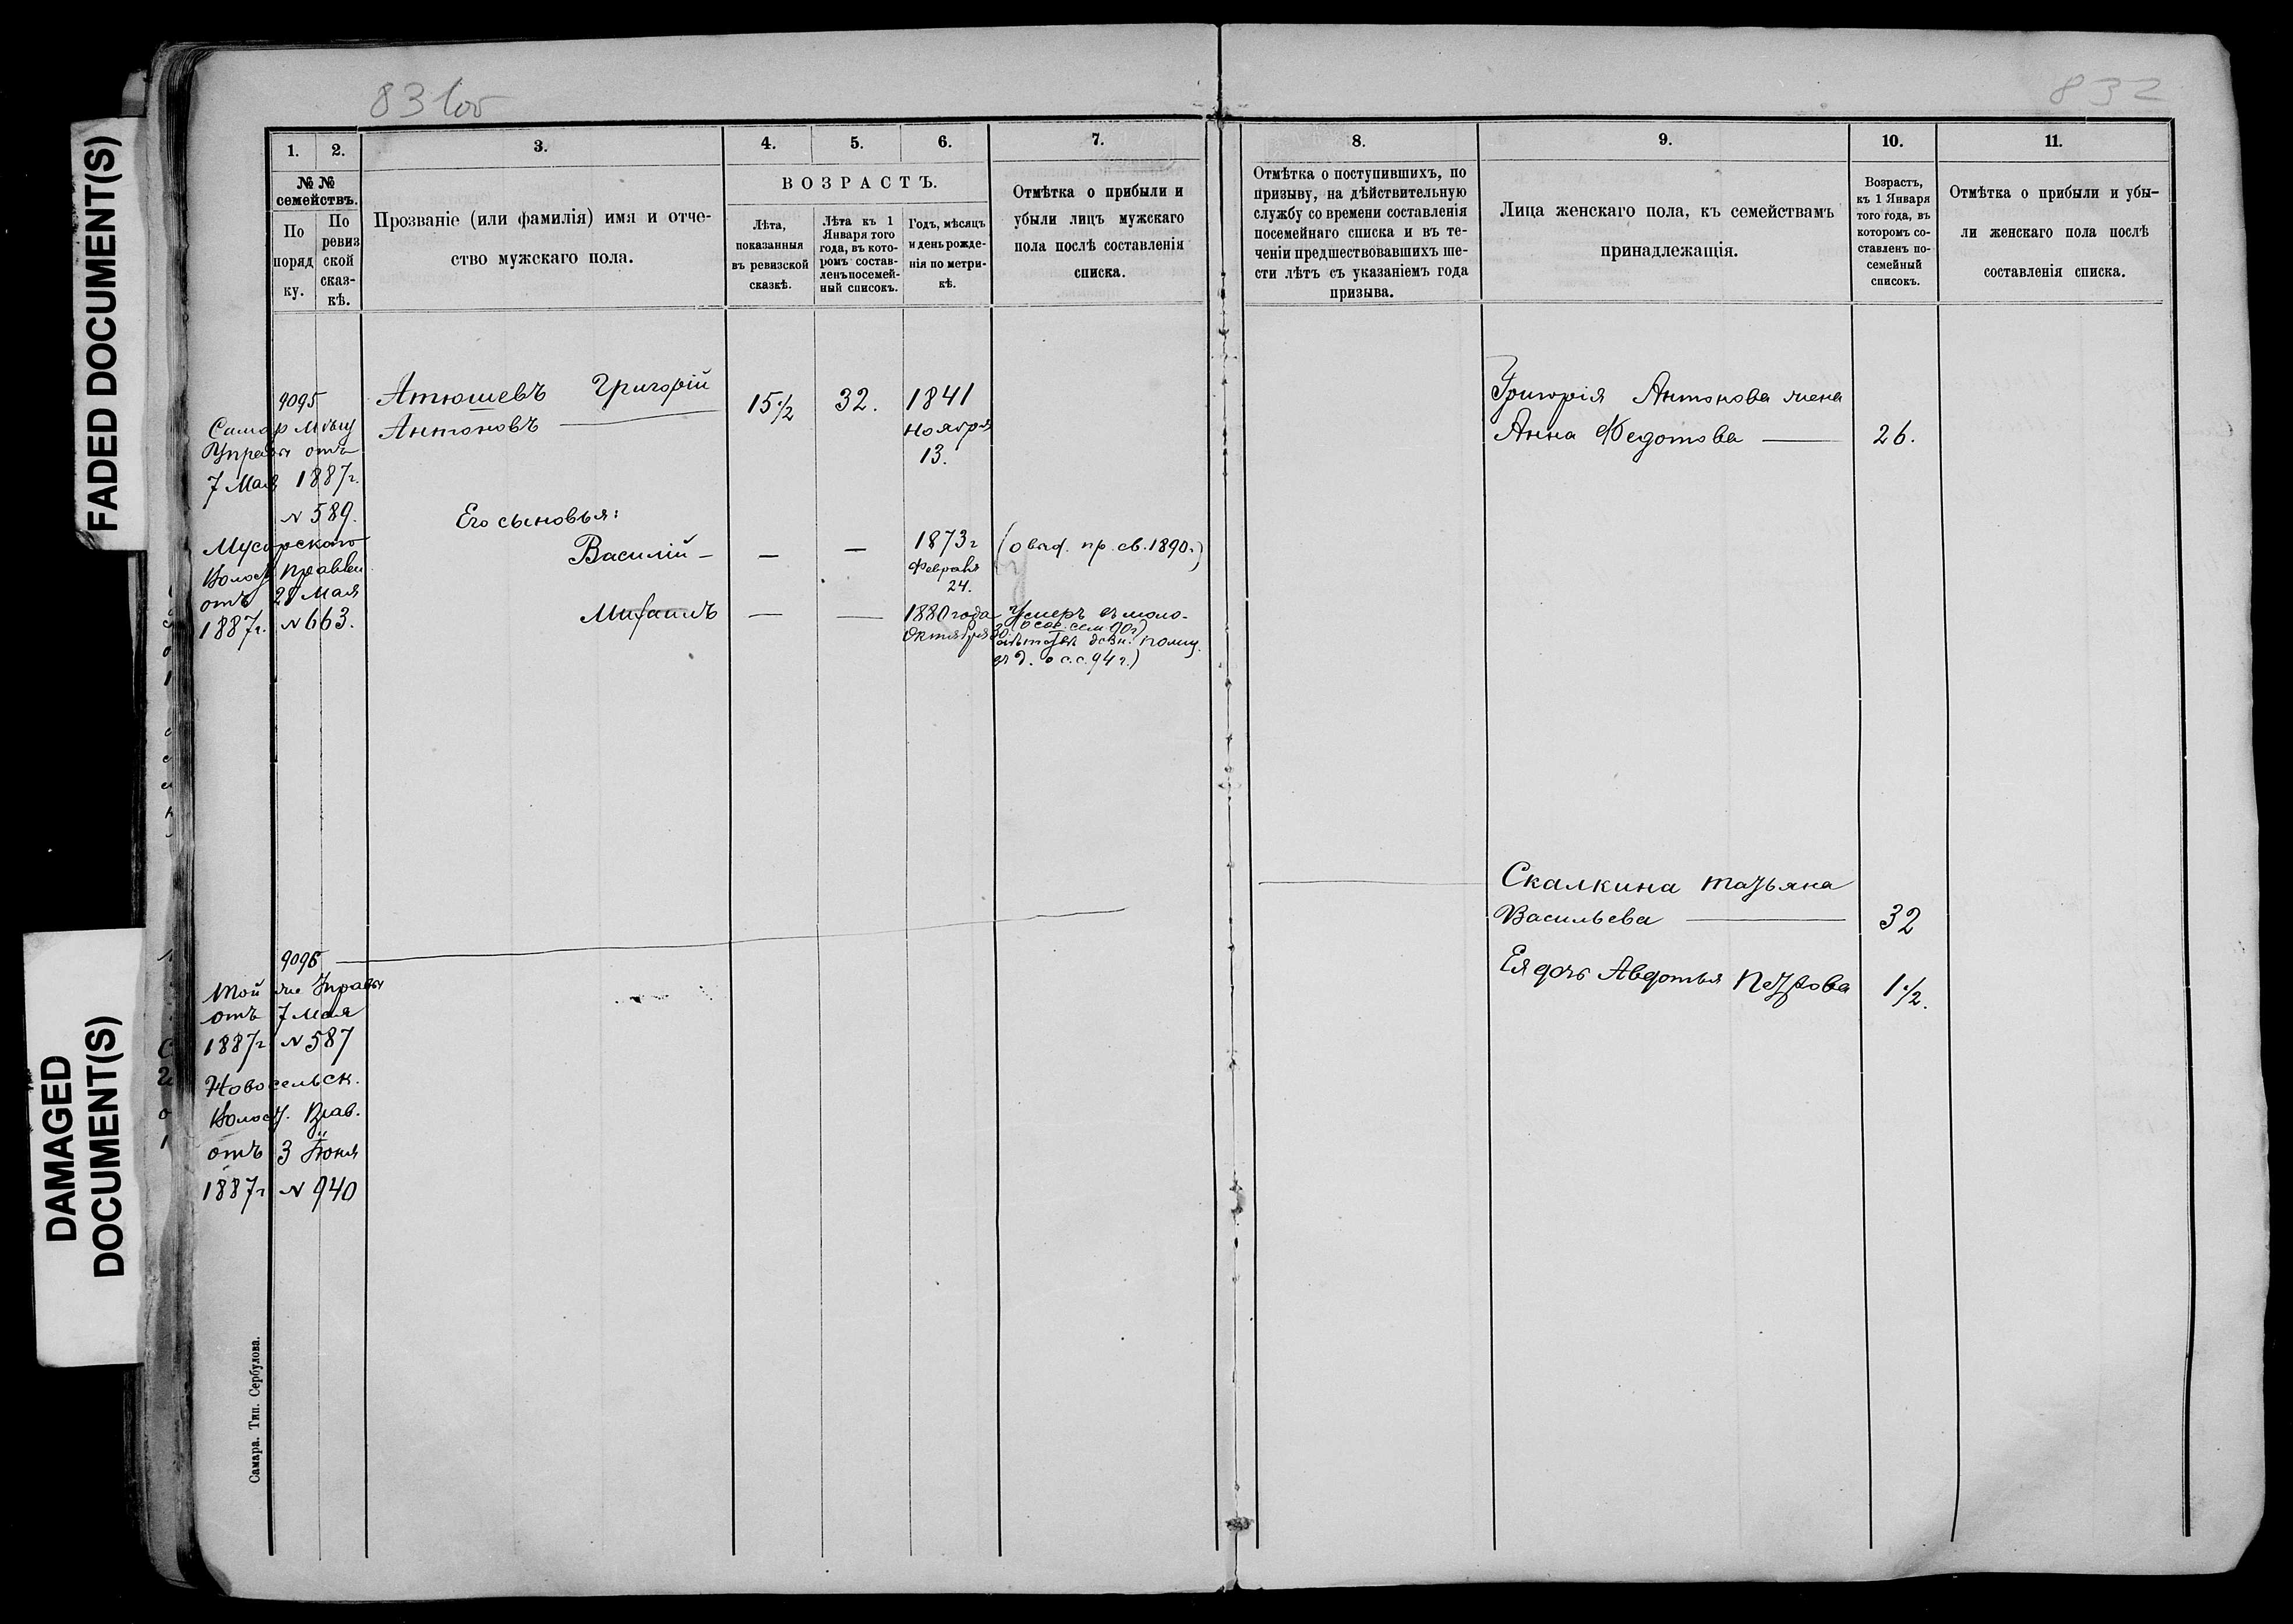 FADED DOCUMENT(S)
DAMAGED
DOCUMENT(S)
831об
832
1.
2.
3.
4.
5.
6.
7.
№ №
семействъ.
По
поряд
ку.
По
ревиз
ской
сказ-
кѣ.
Прозваніе (или фамилія) имя и отче-
ство мужскаго пола.
ВОЗРАСТЪ.
Лѣта,
показанныя
въ ревизской
сказкѣ.
Лѣта къ 1
Января того
года, въ кото-
ромъ состав-
ленъ посемей-
ный списокъ.
Годъ, мѣсяцъ
и день рожде-
нія по метри-
кѣ.
Отмѣтка о прибыли и
убыли лицъ мужскаго
пола послѣ составленія
списка.
8.
9.
10.
11.
Отмѣтка о поступившихъ, по
призыву, на дѣйствительную
службу со времени составленія
посемейнаго списка и въ те-
ченіи предшествовавшихъ ше-
сти лѣтъ съ указаніемъ года
призыва.
Лица женскаго пола, къ семействамъ
принадлежащія.
Возрастъ,
къ 1 Января
того года, въ
которомъ со-
ставленъ по-
семейный
списокъ.
Отмѣтка о прибыли и убы-
ли женскаго пола послѣ
составленія списка.
9095
Самар Мѣщ
Управы отъ
7 Мая 1887г.
№ 589.
Мусорскаго
Волост Правлен
отъ 28 Мая
1887г. № 663.
Атюшевъ Григорій
Антоновъ
15 1/2
32.
1841
ноября
13.
Его сыновья:
Василій — — —
1873г
Февраля
24.
пр. св. 1890г.)
Михаилъ — —
1880 года
Октября 30
Умеръ въ моло-
с.с. 94 г.)
Григорія Антонова жена
Анна Федотова
26.
Скалкина Татьяна
Васильева
32
Ея дочь Авдотья Петрова
1 1/2.
9096
Той же Управы
отъ 7 Мая
1887г № 587
Новосельск.
Волост. Прав.
отъ 3 Іюня
1887г № 940
Самара. Тип. Сербулова.